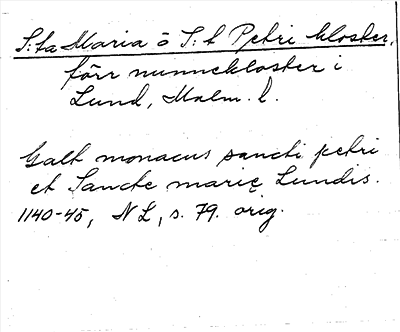 S:ta Maria o S:t Petri kloster,
förr nunnekloster i
Lund, Malm. l.
Galt monacus sancti petri
et Sancte marię Lundis.
1140-45, NL, s. 79. orig.